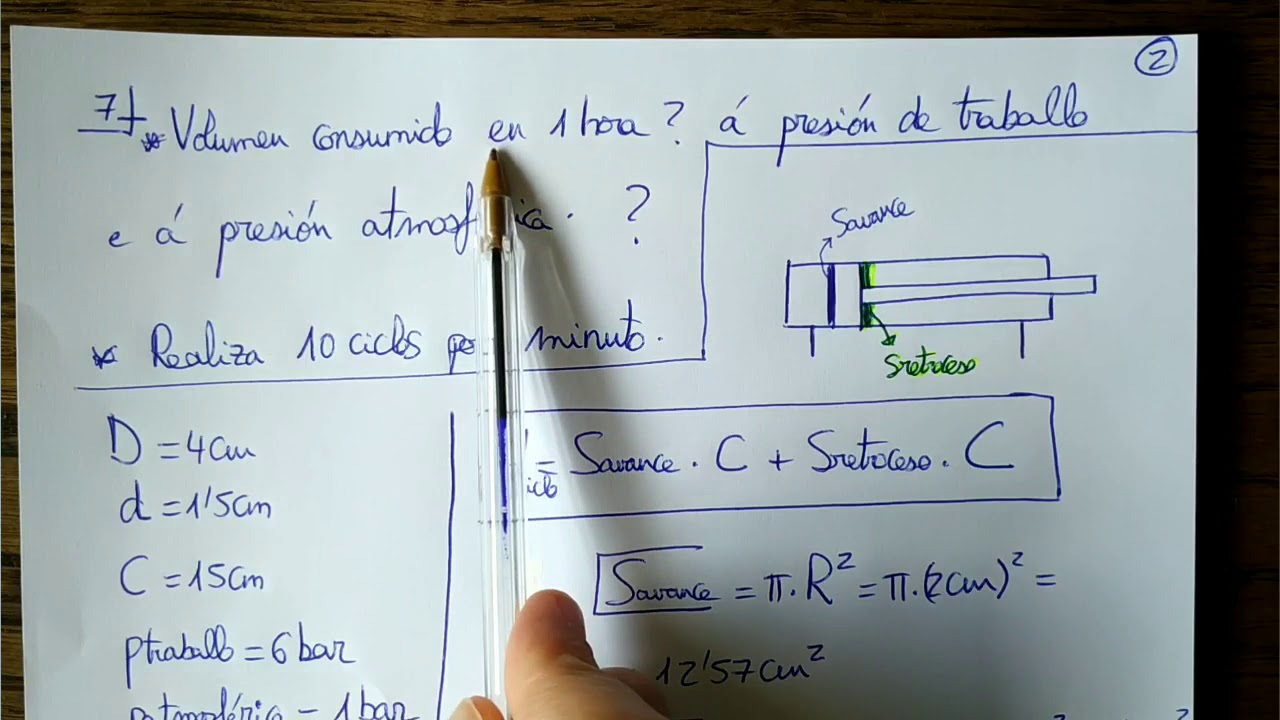 2
7
* Volumen consumido en 1 hora? á presión de traballo
e á presión ?
* Realiza 10 ciclos minuto.
Savance
Sretroceso
D = 4cm
d = 1'5cm
C = 15cm
ptraballo = 6 bar
patmosférica = 1 bar
= Savance . C + Sretroceso . C
Savance = π.R² = π.(2cm)² =
12'57cm²